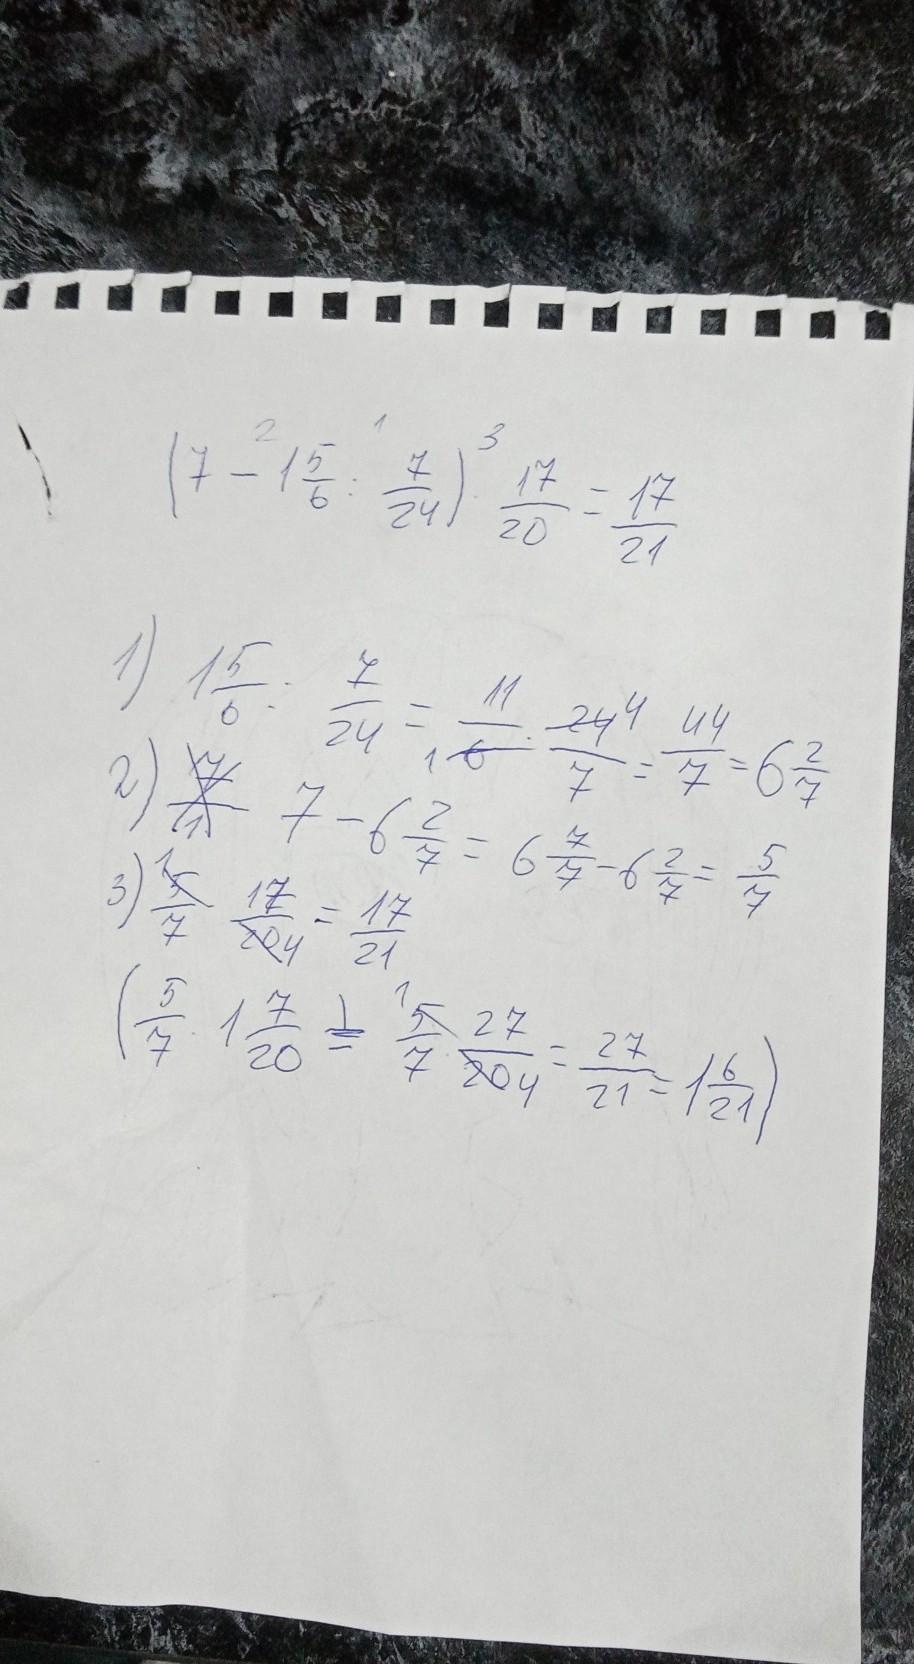 (7 - 1 5/6 : 7/24) · 17/20 = 17/21
1) 1 5/6 : 7/24 = 11/6 · 24/7 = 44/7 = 6 2/7
2) 7 - 6 2/7 = 6 7/7 - 6 2/7 = 5/7
3) 5/7 17/20 = 17/21
(5/7 · 1 7/20 = 5/7 · 27/20 = 27/21 = 1 6/21)